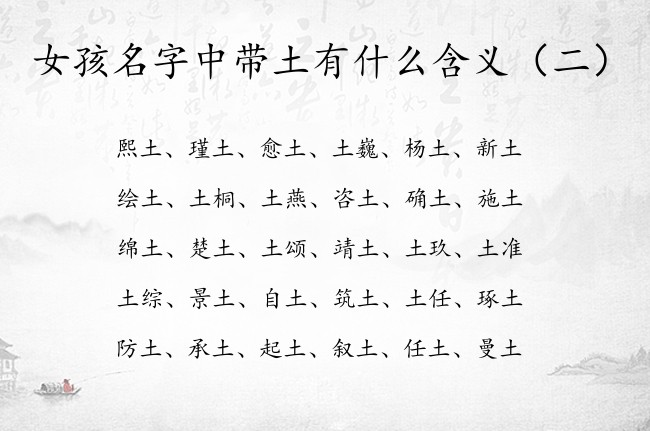 女孩名字中带土有什么含义（二）
熙土、瑾土、愈土、土巍、杨土、新土
绘土、土桐、土燕、咨土、确土、施土
绵土、楚土、土颂、靖土、土玖、土准
土综、景土、自土、筑土、土任、琢土
防土、承土、起土、叙土、任土、曼土